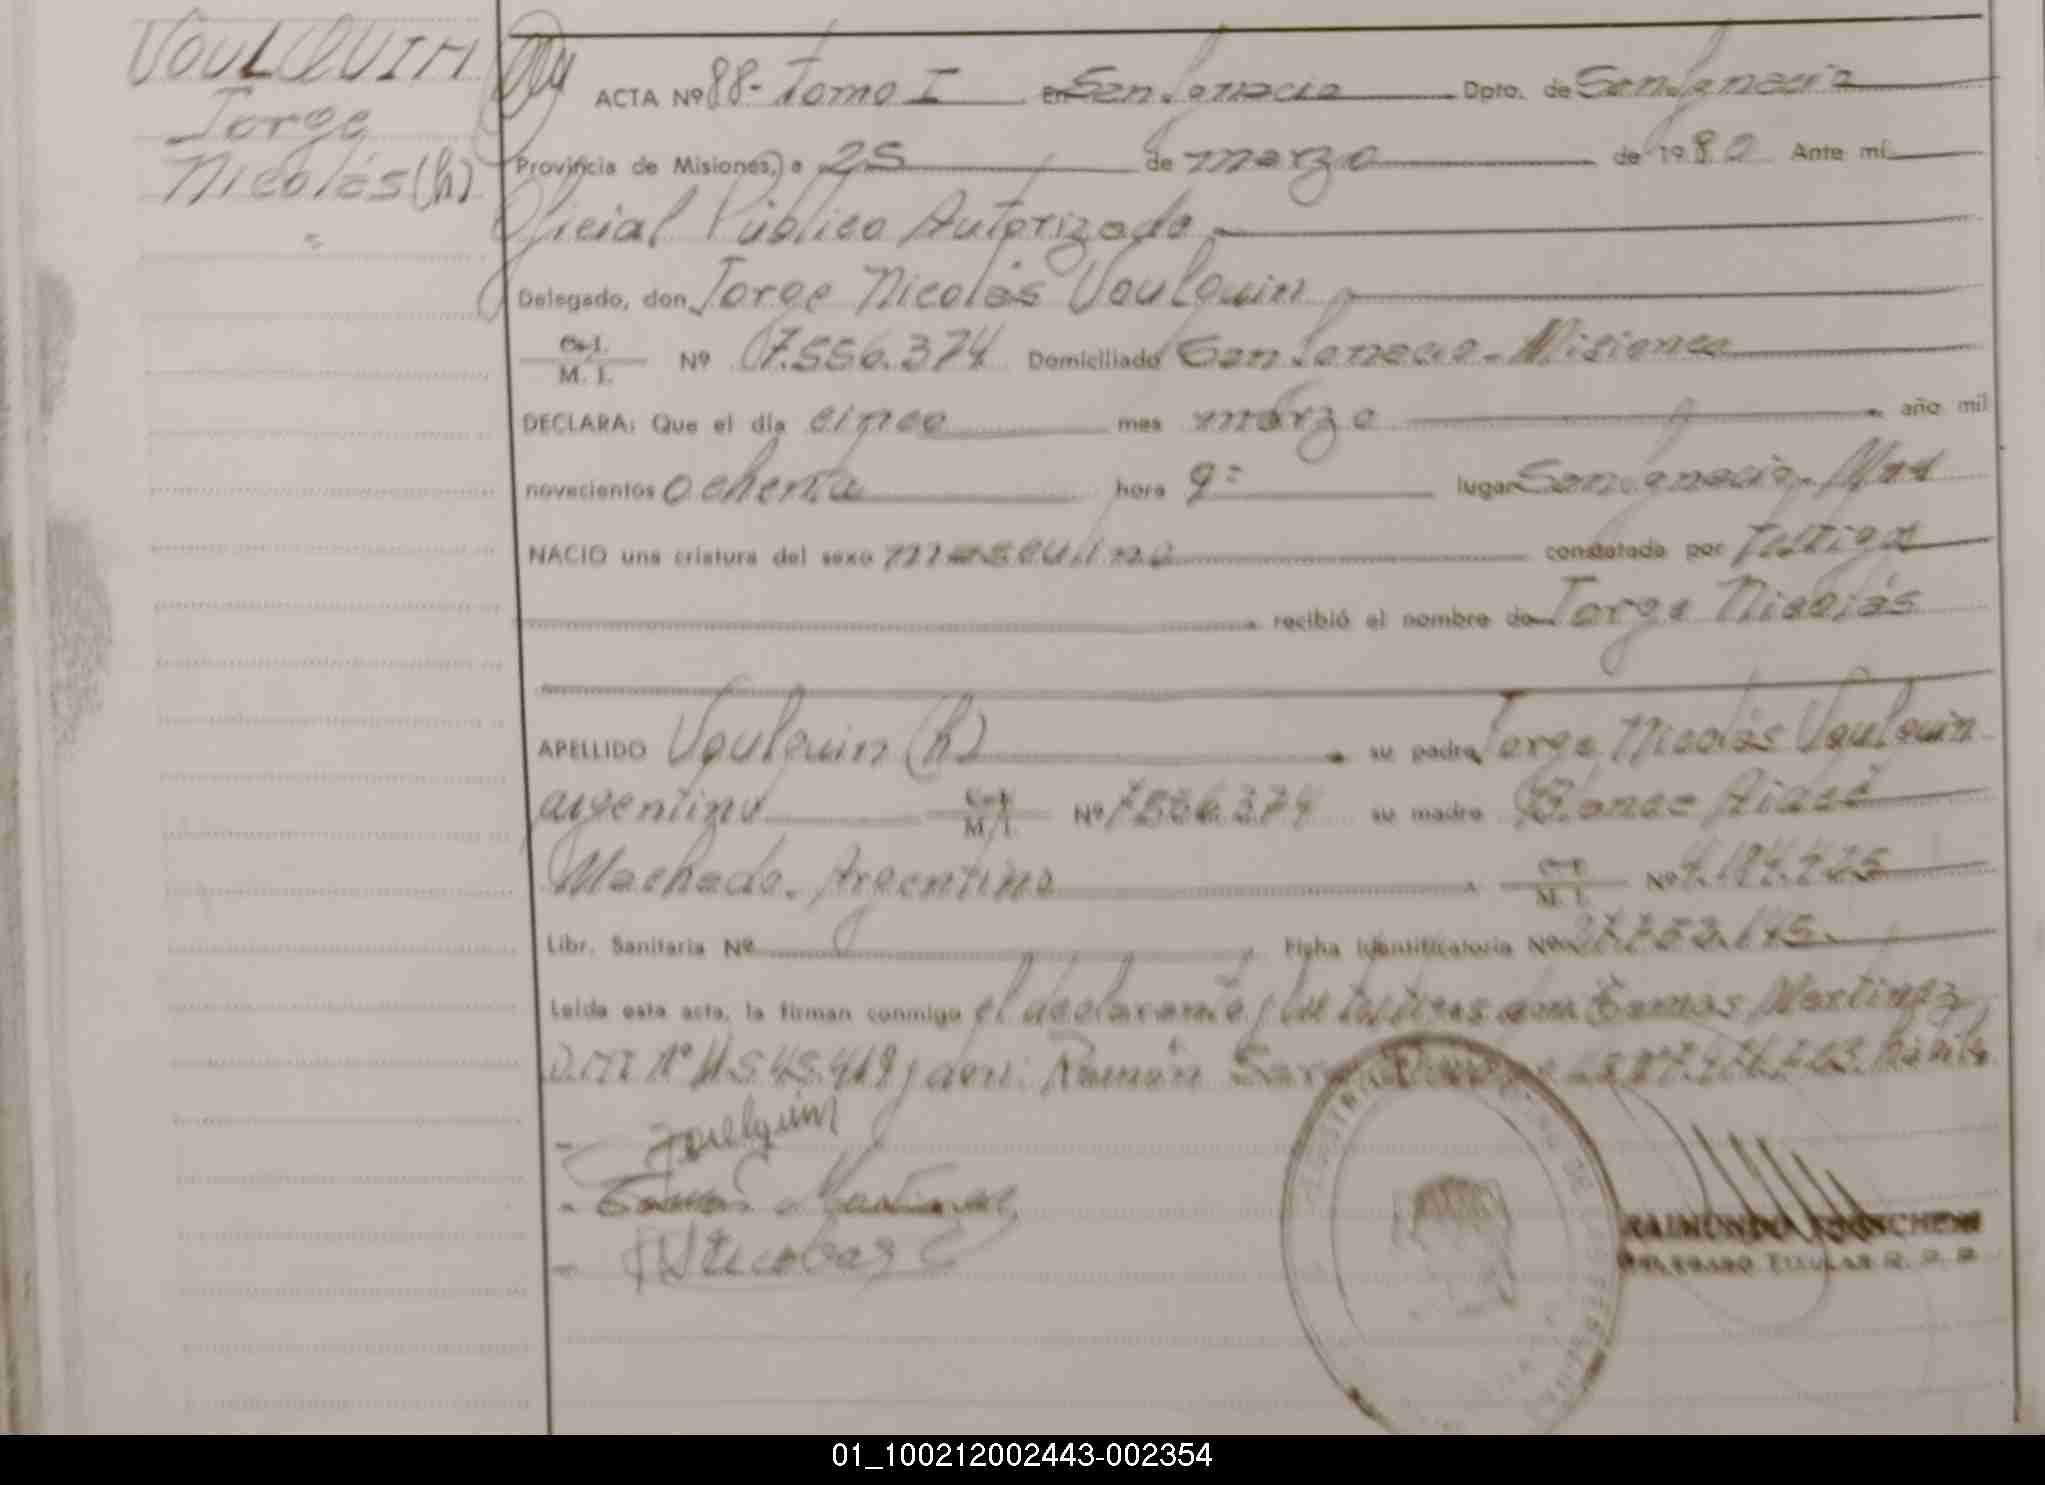 VOULQUIN
Jorge
Nicolás (h)
ACTA Nº 88- Tomo I en San Ignacio Dpto. de San Ignacio
Provincia de Misiones, a 25 de marzo de 1980 Ante mí
Oficial Público Autorizado
Delegado, don Jorge Nicolás Voulquin
C. I. M. I. Nº 07.556.374 Domiciliado San Ignacio - Misiones
DECLARA: Que el día cinco mes marzo año mil
novecientos ochenta hora 9= lugar San Ignacio - Mnes
NACIO una criatura del sexo masculino constatado por Testigos
recibió el nombre de Jorge Nicolás
APELLIDO Voulquin (h) su padre Jorge Nicolás Voulquin
argentino C. I. M. I. Nº 7.556.374 su madre
Machado. Argentina C. I. M. I. Nº
Libr. Sanitaria Nº Ficha Identificatoria Nº
Leída esta acta, la firman conmigo el declarante, los testigos don Tomas Martinez
D.M.I Nº y don: Ramón
Voulquin
Martinez
RAIMUNDO
DELEGADO TITULAR R. P. P.
01_100212002443-002354